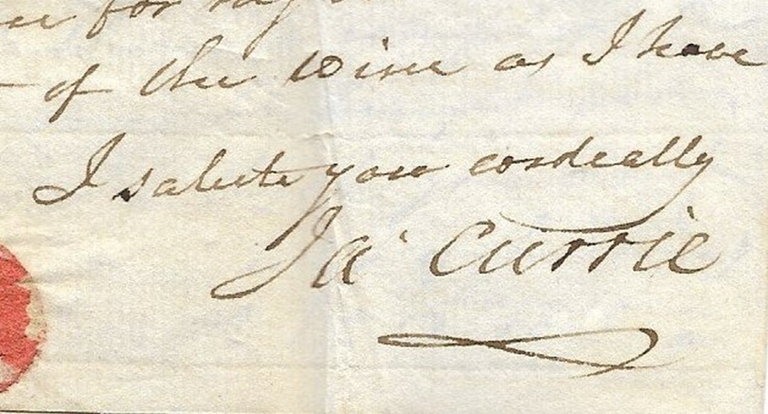 for my
of the wine as I have
I salute you cordially
Ja Currie